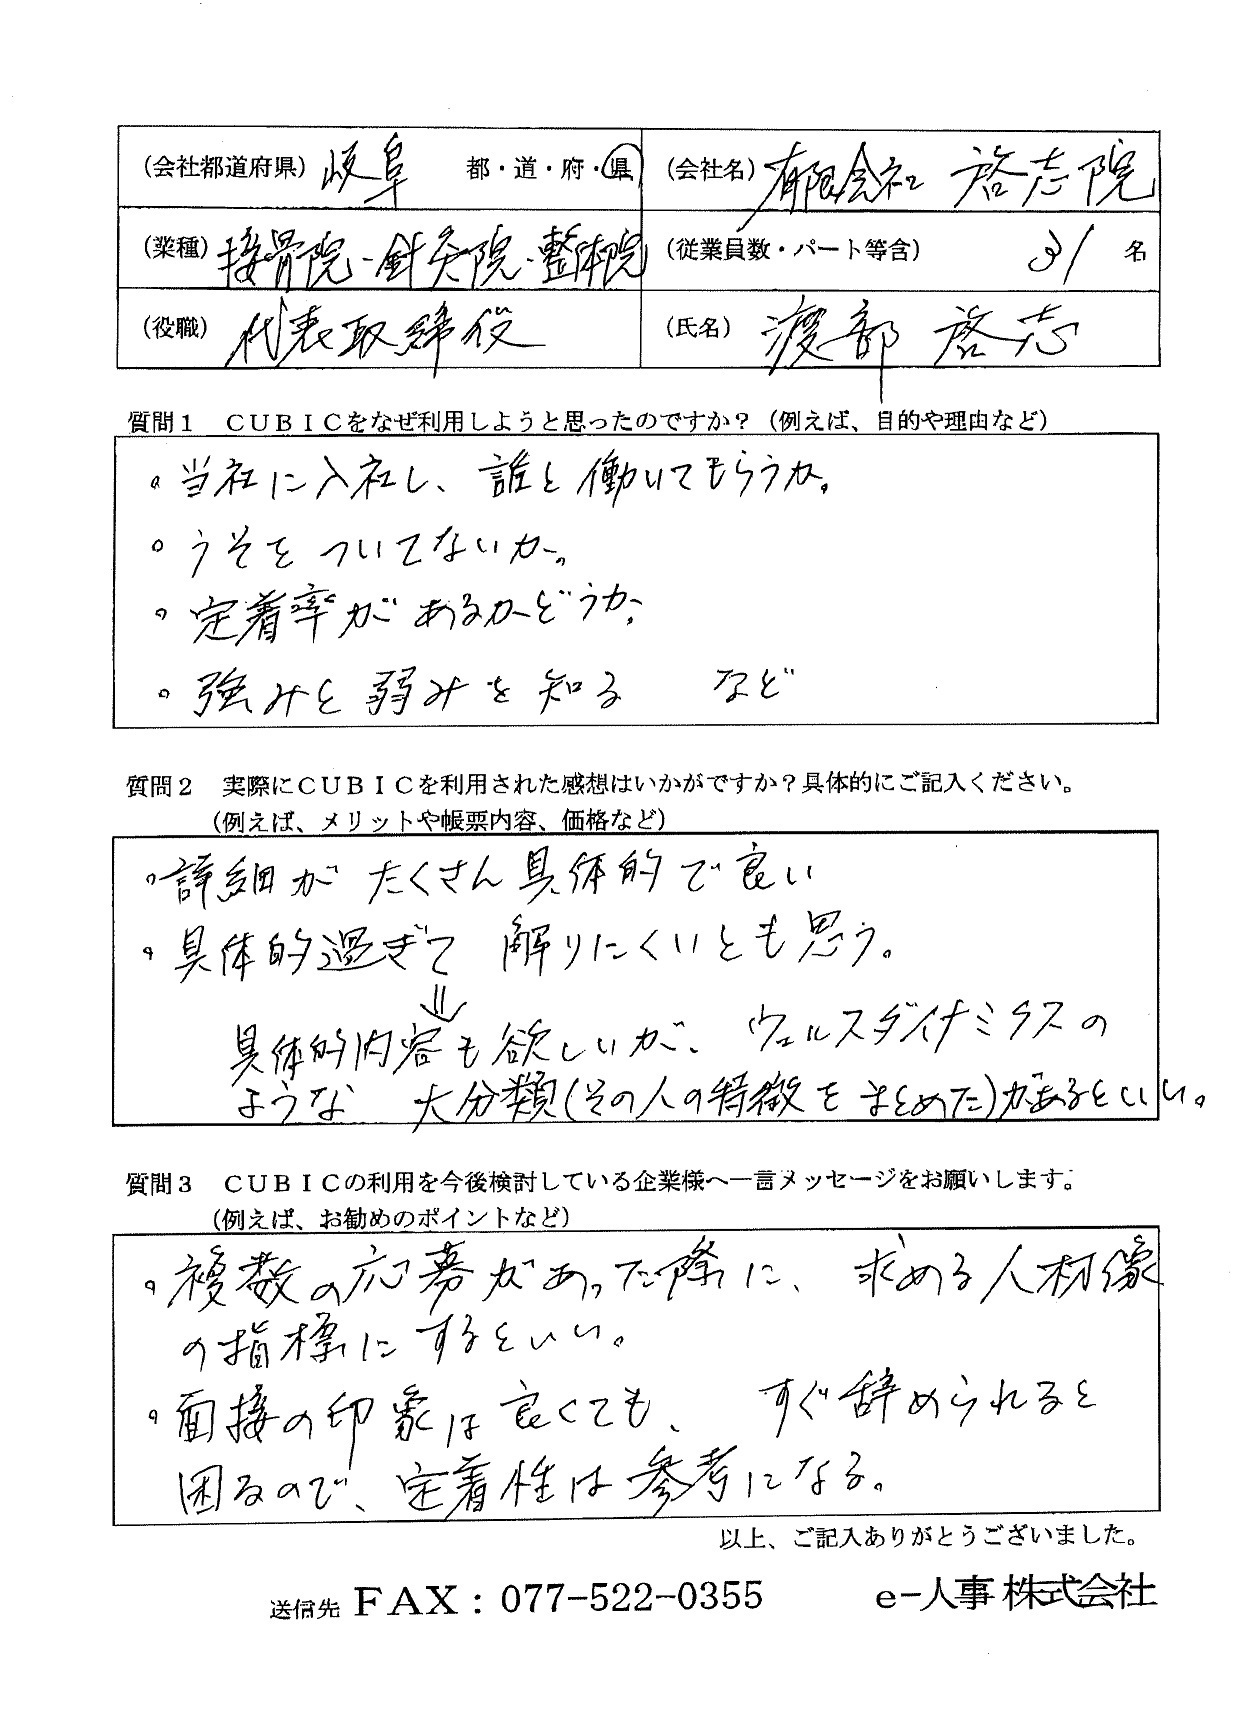 (会社都道府県) 岐阜 都・道・府・県 (会社名) 有限会社 啓志院
(業種) 接骨院・針灸院・整体院 (従業員数・パート等含) 31 名
(役職) 代表取締役 (氏名) 渡部 啓志
質問1 CUBICをなぜ利用しようと思ったのですか?(例えば、目的や理由など)
・当社に入社し、誰と働いてもらうか。
・うそをついてないか。
・定着率があるかどうか。
・強みと弱みを知る など
質問2 実際にCUBICを利用された感想はいかがですか?具体的にご記入ください。
(例えば、メリットや帳票内容、価格など)
・詳細がたくさん具体的で良い
・具体的過ぎて 解りにくいとも思う。
⇓
具体的内容も欲しいが、ウェルスダイナミクスの
ような 大分類(その人の特徴をまとめた)があるといい。
質問3 CUBICの利用を今後検討している企業様へ一言メッセージをお願いします。
(例えば、お勧めのポイントなど)
・複数の応募があった際に、求める人材像
の指標にするといい。
・面接の印象は良くても、すぐ辞められると
困るので、定着性は参考になる。
以上、ご記入ありがとうございました。
送信先 FAX:077-522-0355 e-人事株式会社